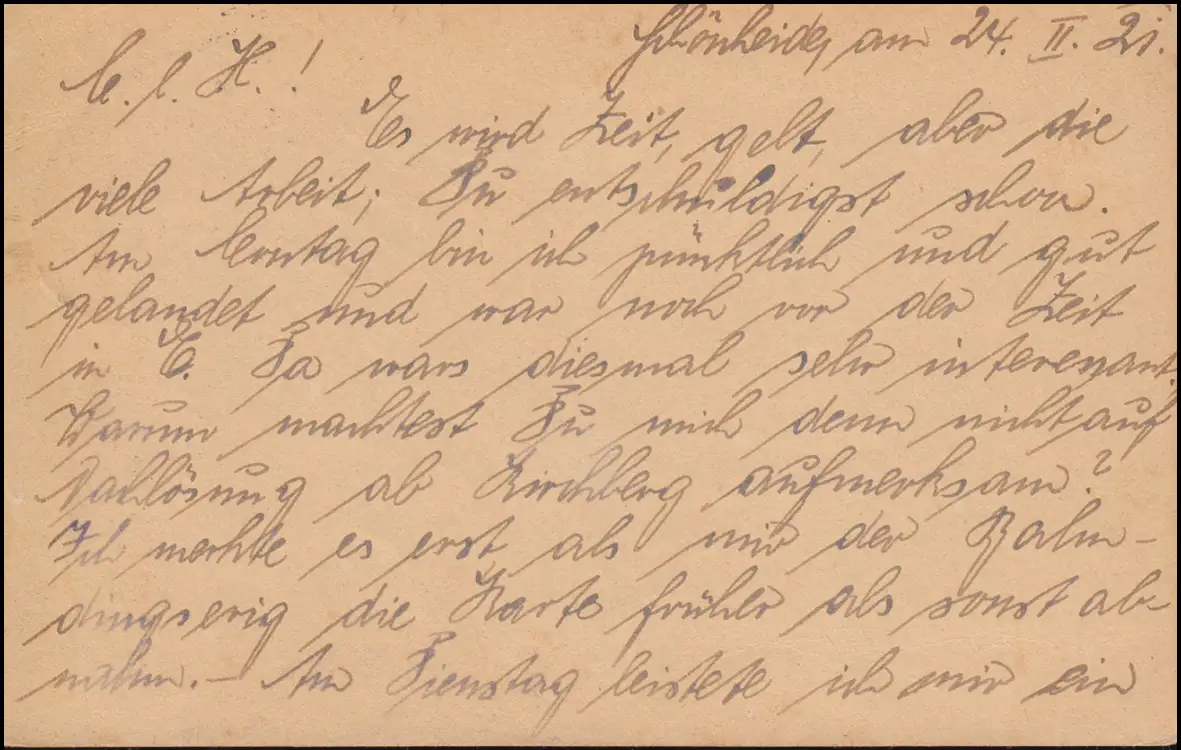 Schönheide, am 24. II. 21.
M. l. H.!
Es wird Zeit, gelt, aber die
viele Arbeit; Du entschuldigst schon.
Am Montag bin ich pünktlich und gut
gelandet und war noch vor der Zeit
in E. Da wars diesmal sehr interessant.
Warum machtest Du mich denn nicht auf
Nachlösung ab Kirchberg aufmerksam?
Ich merkte es erst, als mir der Bahn-
dingserig die Karte früher als sonst ab-
nahm. – Am Dienstag leistete ich mir ein